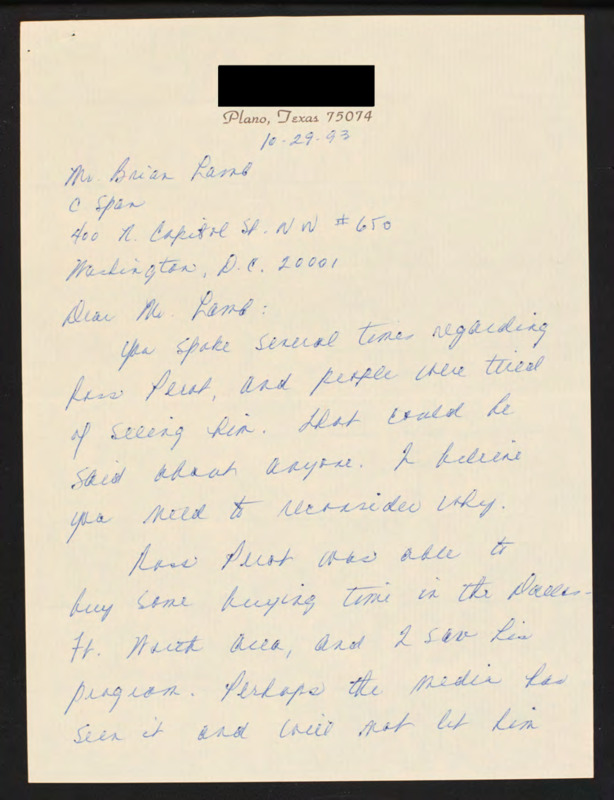 Plano, Texas 75074
10-29-93
Mr. Brian Lamb
C Span
400 N. Capitol St. NW #650
Washington, D.C. 20001
Dear Mr. Lamb:
You spoke several times regarding
Ross Perot, and people were tired
of seeing him. That could be
said about anyone. I believe
you need to reconsider why.
Ross Perot was able to
buy some buying time in the Dallas-
Ft. Worth area, and I saw his
program. Perhaps the media has
seen it and will not let him